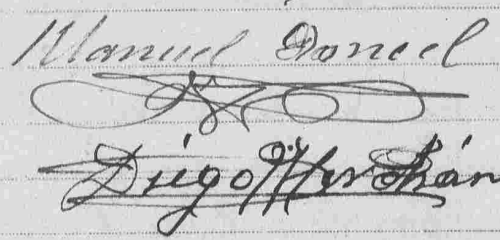 Manuel Doncel
Diego Merchán